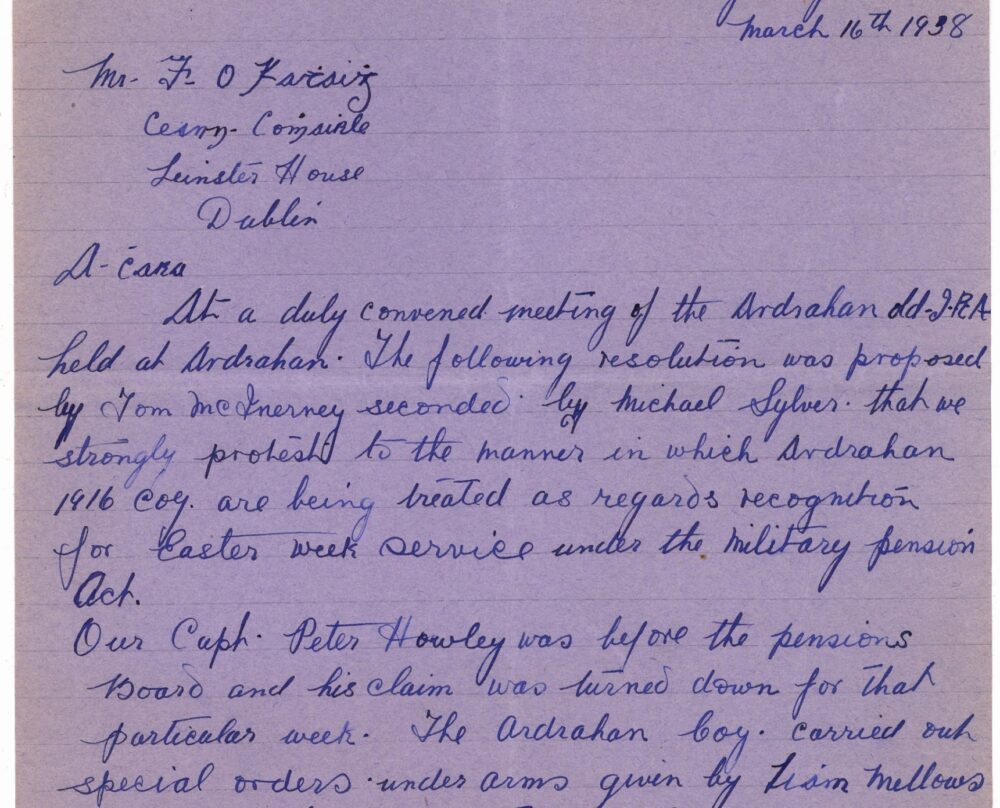 March 16th 1938
Mr. F. O
Leinster House
Dublin
A-ċara
At a duly convened meeting of the Ardrahan old-I-R-A
held at Ardrahan. The following resolution was proposed
by Tom McInerney seconded by Michael Sylver. that we
strongly protest to the manner in which Ardrahan
1916 Coy. are being treated as regards recognition
for Easter week service under the Military pension
Act.
Our Capt. Peter Howley was before the pensions
Board and his claim was turned down for that
particular week. The Ardrahan Coy. carried out
special orders under arms given by Liam Mellows